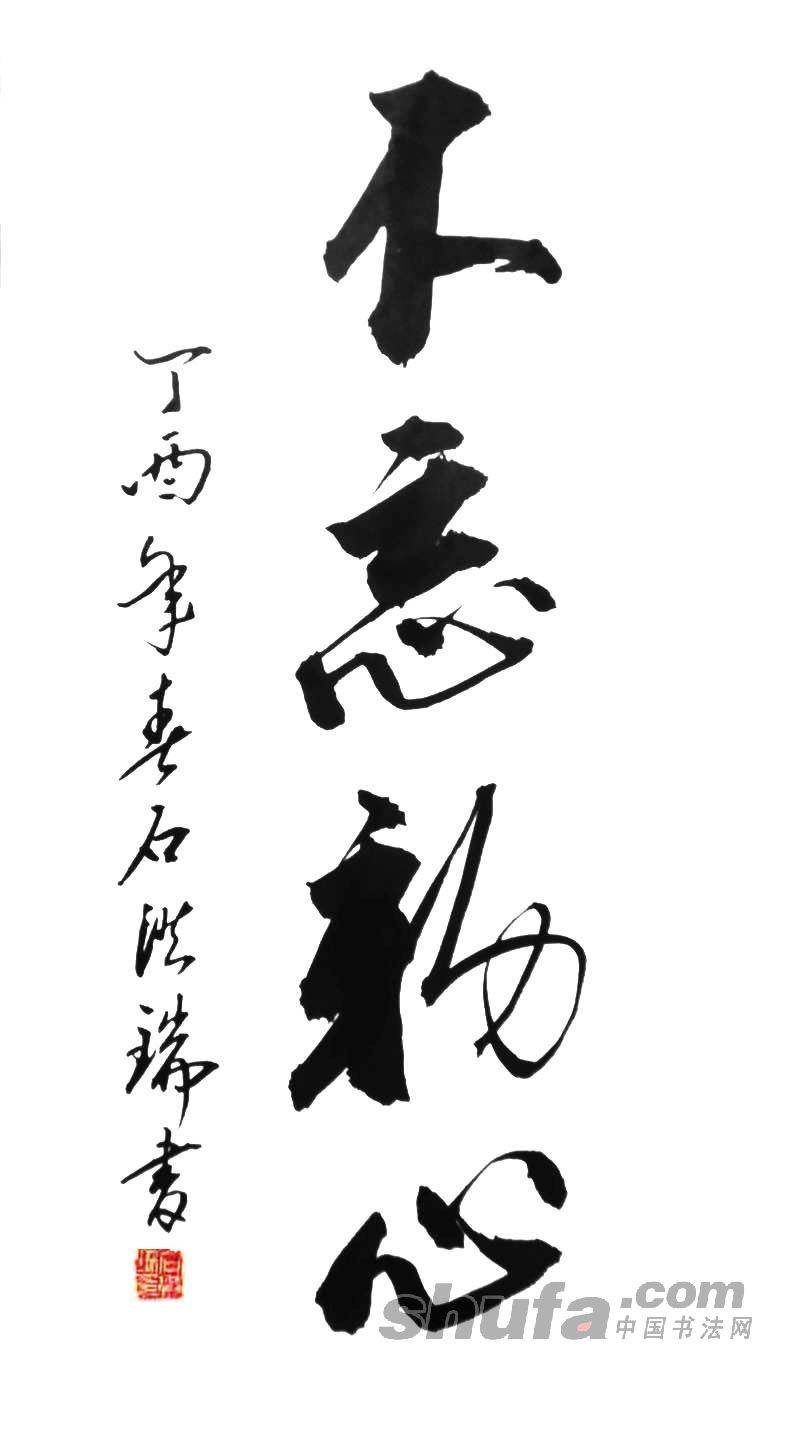 不忘初心
丁酉年春石洪瑞书
shufa.com
中国书法网